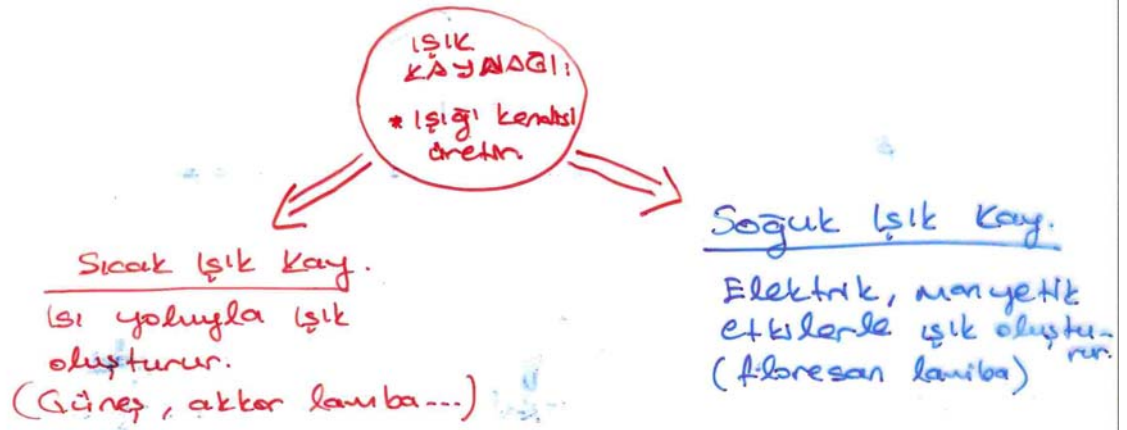 IŞIK
KAYNAĞI:
* Işığı kendisi
üretir.
Sıcak Işık Kay.
Isı yoluyla ışık
oluşturur.
(Güneş, akkor lamba...)
Soğuk Işık Kay.
Elektrik, manyetik
etkilerle ışık oluştu-
rur.
(floresan lamba)